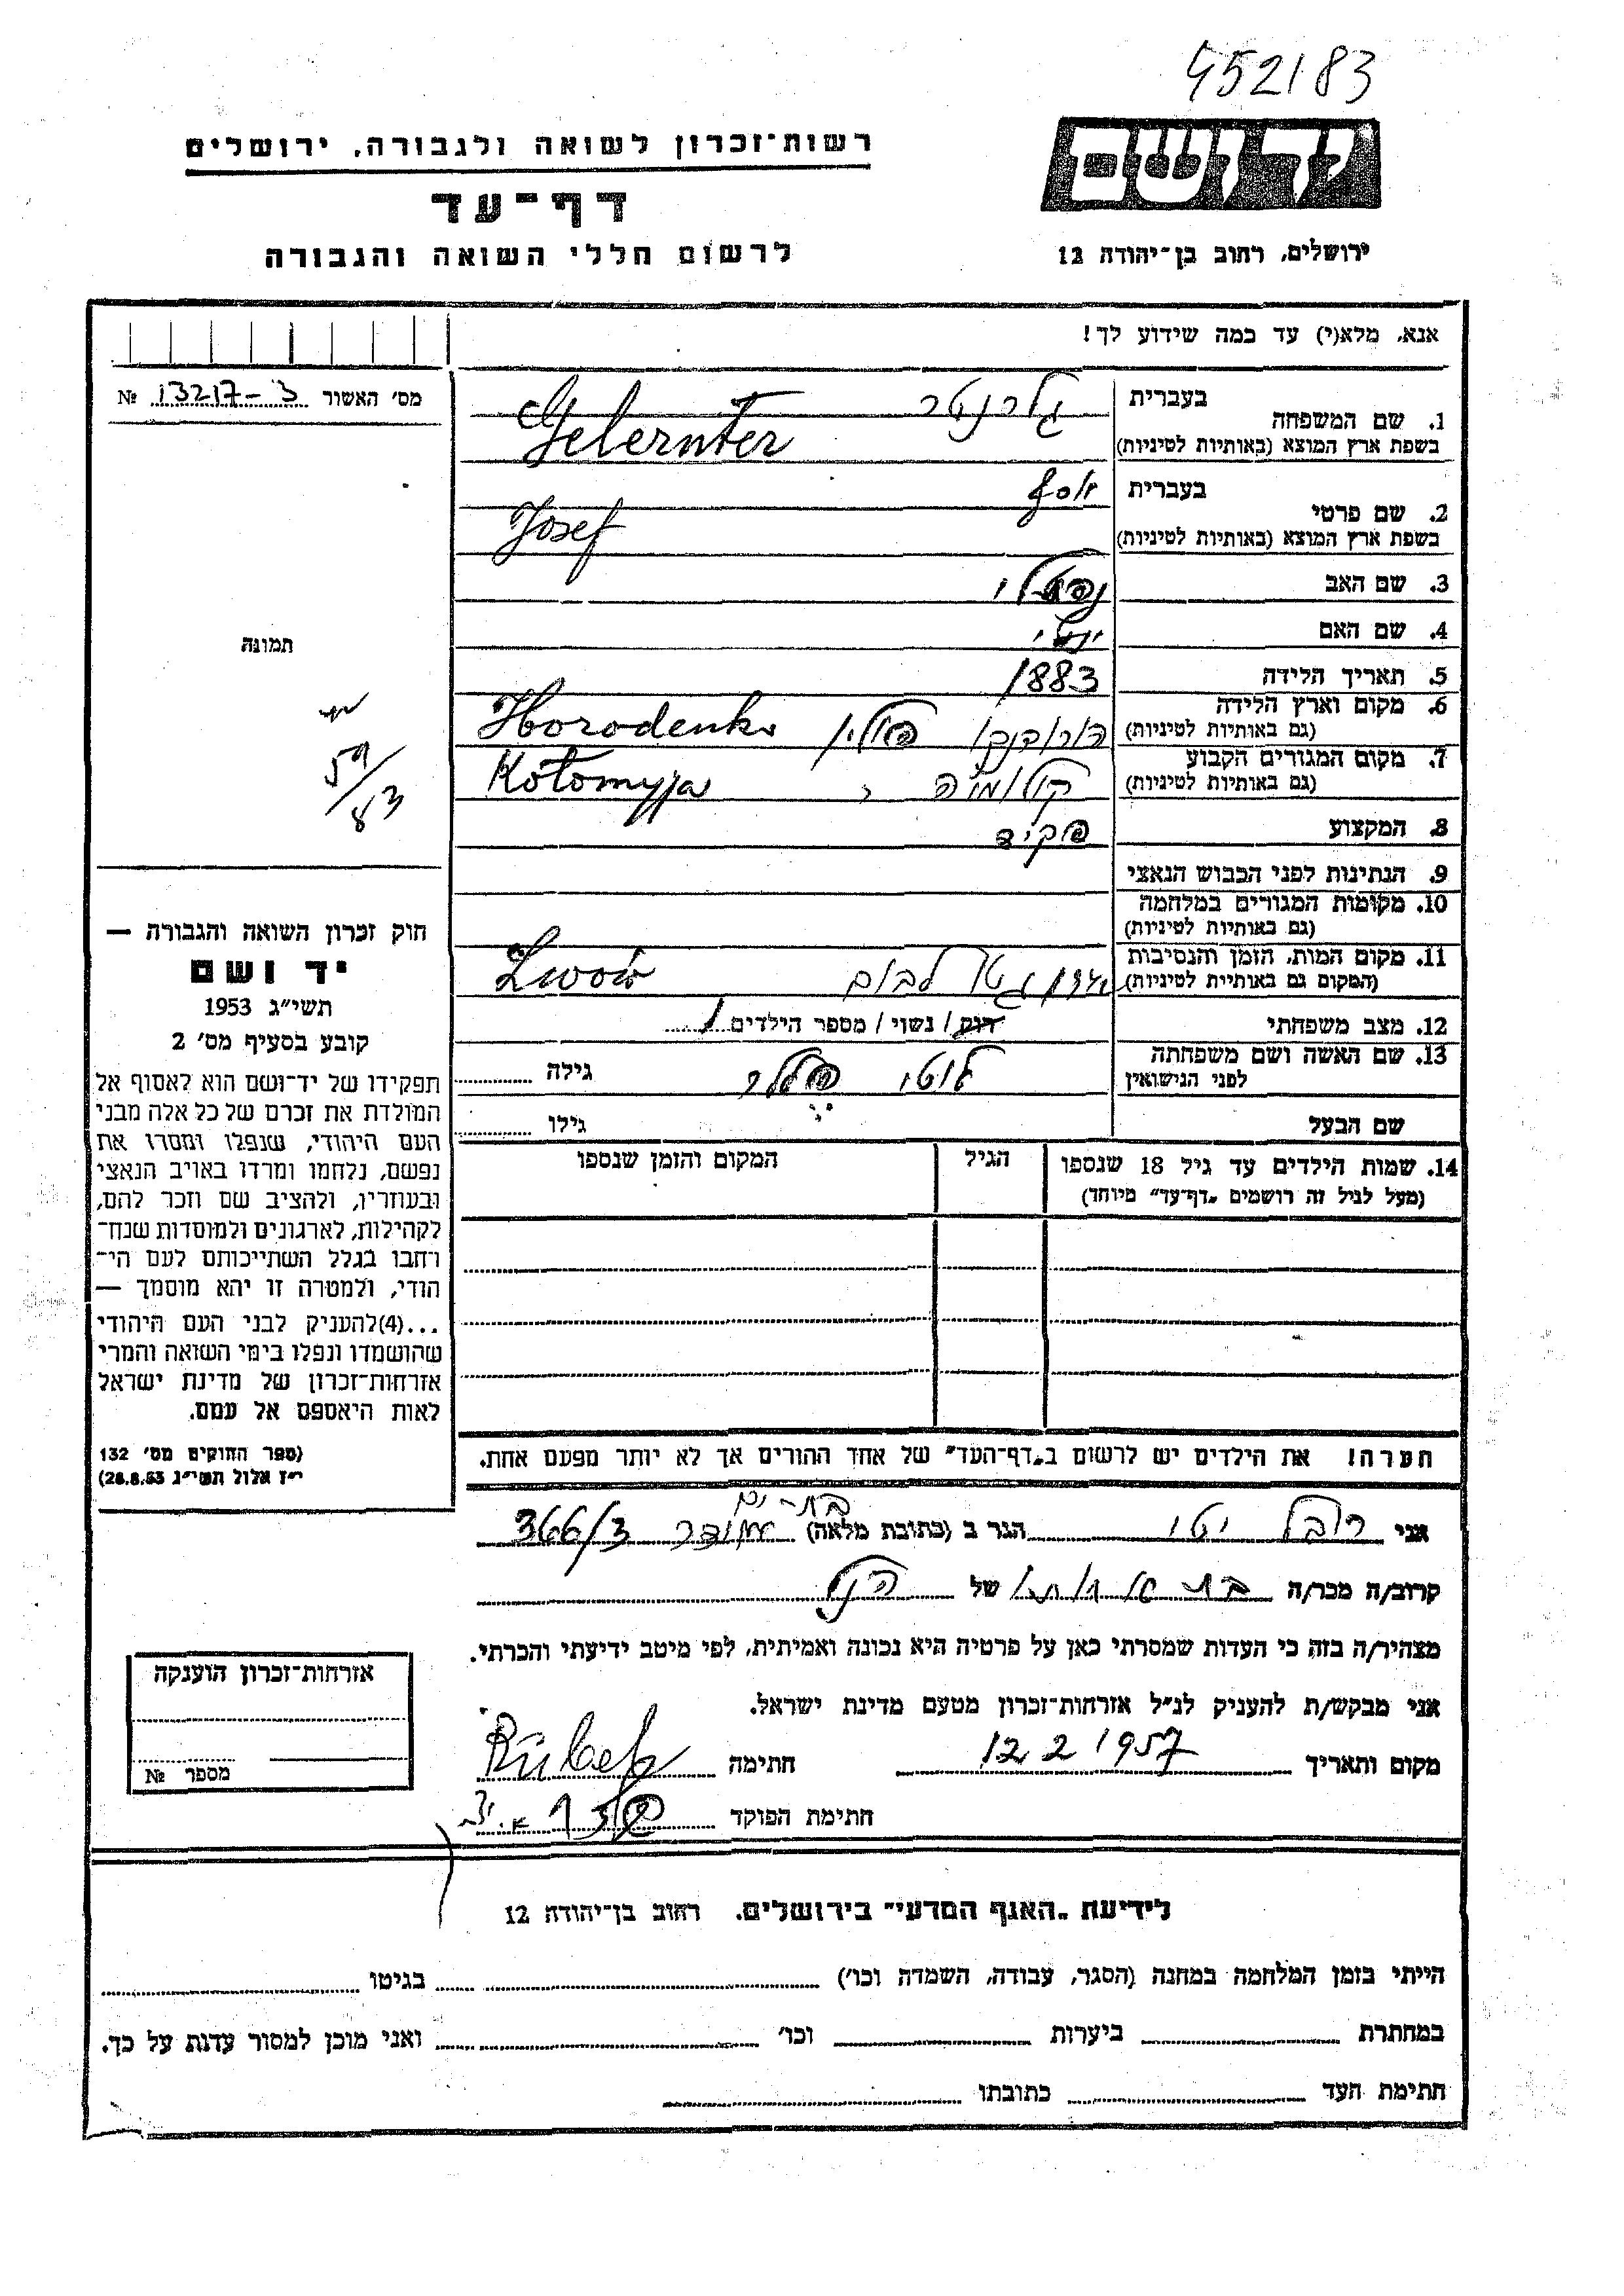 452183
יד ושם
רשות־זכרון לשואה ולגבורה, ירושלים
דף־עד
לרשום חללי השואה והגבורה
ירושלים, רחוב בן־יהודה 12
אנא, מלא(י) עד כמה שידוע לך!
מס' האשור 13217-3 №
תמונה
59/83
חוק זכרון השואה והגבורה —
יד ושם
תשי"ג 1953
קובע בסעיף מס' 2
תפקידו של יד־ושם הוא לאסוף אל
המולדת את זכרם של כל אלה מבני
העם היהודי, שנפלו ומסרו את
נפשם, נלחמו ומרדו באויב הנאצי
ובעוזריו, ולהציב שם וזכר להם,
לקהילות, לארגונים ולמוסדות שנח־
רחבו בגלל השתייכותם לעם הי־
הודי, ולמטרה זו יהא מוסמך —
...(4)להעניק לבני העם היהודי
שהושמדו ונפלו בימי השואה והמרי
אזרחות־זכרון של מדינת ישראל
לאות היאספם אל עמם.
(ספר החוקים מס' 132
י"ז אלול תשי"ג 28.8.53)
בעברית גלרנטר
1. שם המשפחה
בשפת ארץ המוצא (באותיות לטיניות) Gelernter
בעברית יוסף
2. שם פרטי
בשפת ארץ המוצא (באותיות לטיניות) Josef
3. שם האב נפתלי
4. שם האם
5. תאריך הלידה 1883
6. מקום וארץ הלידה פולין Horodenka
(גם באותיות לטיניות)
7. מקום המגורים הקבוע קולומיה Kołomyja
(גם באותיות לטיניות)
8. המקצוע פקיד
9. הנתינות לפני הכבוש הנאצי
10. מקומות המגורים במלחמה
(גם באותיות לטיניות)
11. מקום המות, הזמן והנסיבות גטו לבוב Lwów
(המקום גם באותיות לטיניות)
12. מצב משפחתי רווק / נשוי / מספר הילדים 1
13. שם האשה ושם משפחתה לוטי גילה
לפני הנישואין
שם הבעל גילו
14. שמות הילדים עד גיל 18 שנספו הגיל המקום והזמן שנספו
(מעל לגיל זה רושמים "דף־עד" מיוחד)
הערה! את הילדים יש לרשום ב"דף־העד" של אחד ההורים אך לא יותר מפעם אחת.
בת-ים
אני רובל יטי הגר ב (כתובת מלאה) 366/3
קרוב/ה מכר/ה של הנ"ל
מצהיר/ה בזה כי העדות שמסרתי כאן על פרטיה היא נכונה ואמיתית, לפי מיטב ידיעתי והכרתי.
אני מבקש/ת להעניק לנ"ל אזרחות־זכרון מטעם מדינת ישראל.
מקום ותאריך 12 2 1957 חתימה Rübel
חתימת הפוקד
אזרחות־זכרון הוענקה
מספר №
לידיעת "האגף המדעי" בירושלים, רחוב בן־יהודה 12
הייתי בזמן המלחמה במחנה (הסגר, עבודה, השמדה וכו') בגיטו
במחתרת ביערות וכו' ואני מוכן למסור עדות על כך.
חתימת העד כתובתו